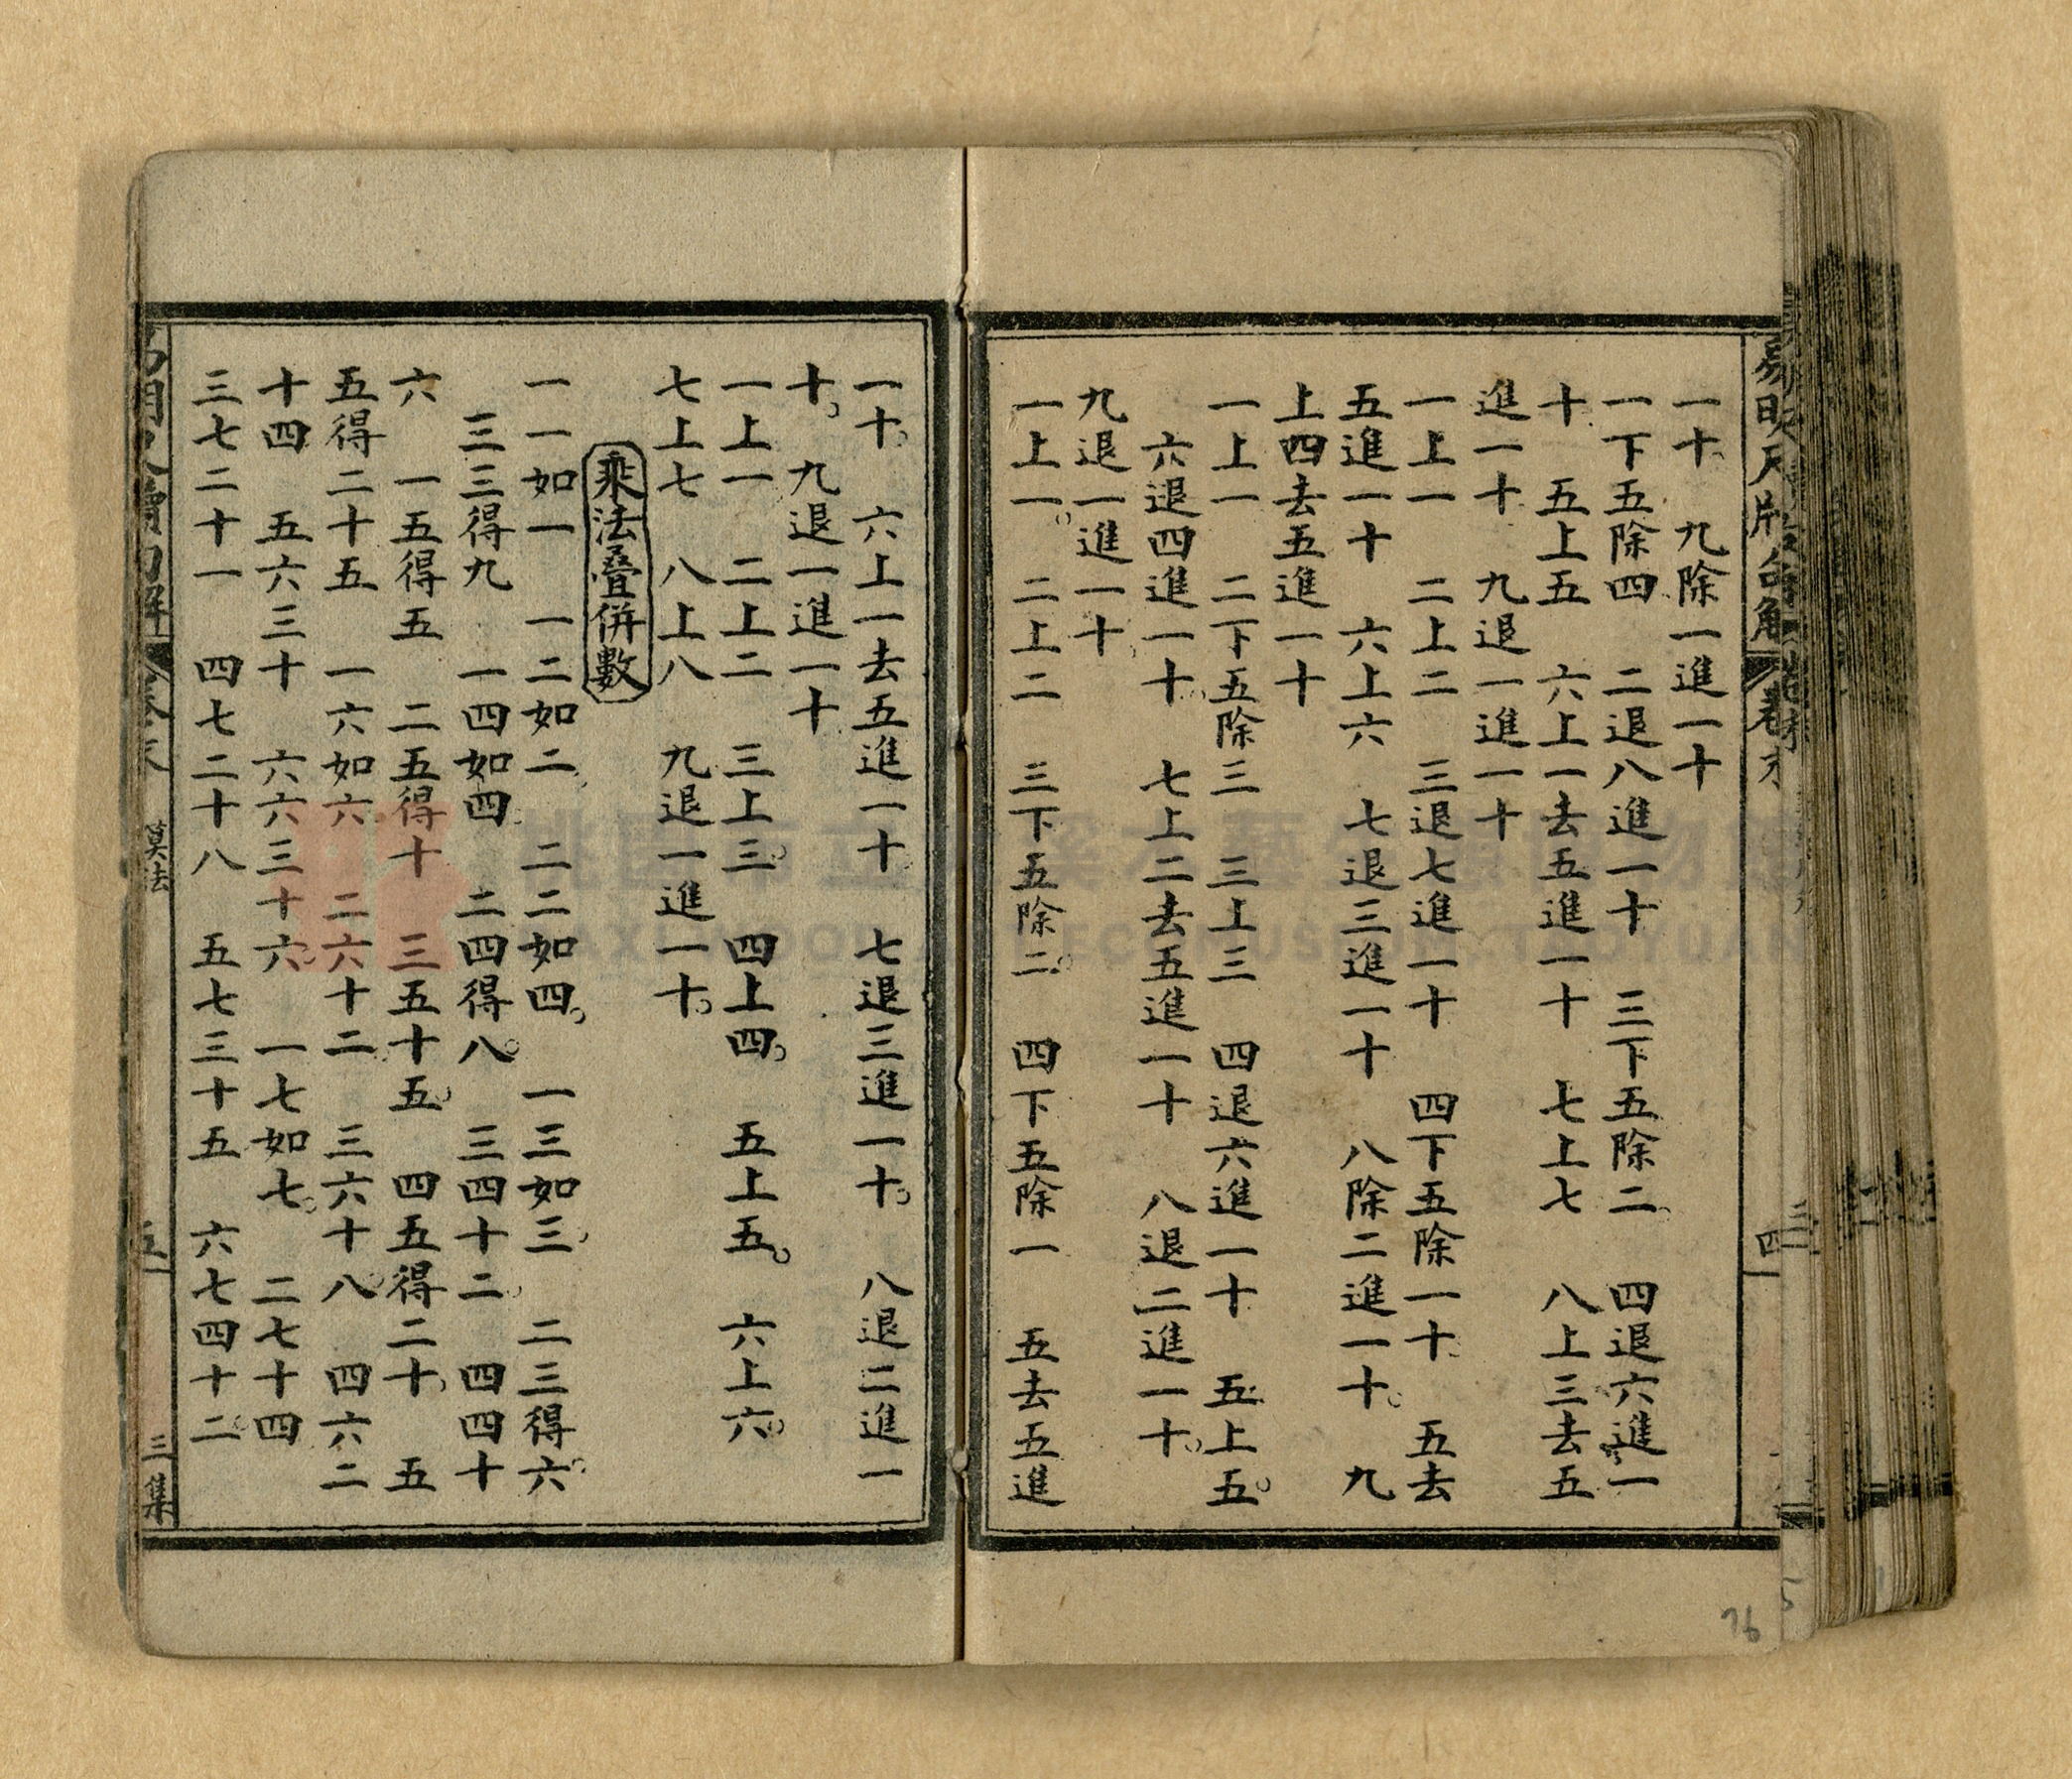 一十 九除一進一十
一下五除四 二退八進一十 三下五除二 四退六進一
十 五上五 六上一去五進一十 七上七 八上三去五
進一十 九退一進一十
一上一 二上二 三退七進一十 四下五除一十 五去
五進一十 六上六 七退三進一十 八除二進一十 九
上四去五進一十
一上一 二下五除三 三上三 四退六進一十 五上五
六退四進一十 七上二去五進一十 八退二進一十
九退一進一十
一上一 二上二 三下五除二 四下五除一 五去五進
一十 六上一去五進一十 七退三進一十 八退二進一
十 九退一進一十
一上一 二上二 三上三 四上四 五上五 六上六
七上七 八上八 九退一進一十
乘法疊併數
一一如一 一二如二 二二如四 一三如三 二三得六
三三得九 一四如四 二四得八 三四十二 四四十
六 一五得五 二五得十 三五十五 四五得二十 五
五得二十五 一六如六 二六十二 三六十八 四六二
十四 五六三十 六六三十六 一七如七 二七十四
三七二十一 四七二十八 五七三十五 六七四十二
卷末
四
五
三集
76